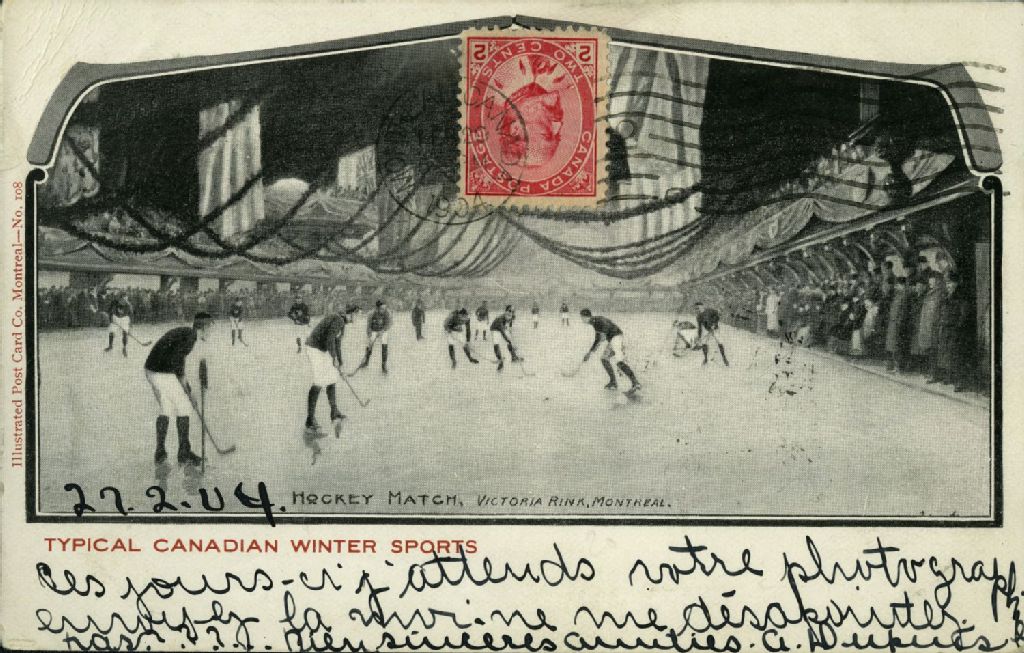 2 CENTS 2
CANADA POSTAGE
TWO
CANADA
1904
Illustrated Post Card Co. Montreal—No. 108
27.2.04.
HOCKEY MATCH, VICTORIA RINK, MONTREAL.
TYPICAL CANADIAN WINTER SPORTS
ces jours-ci j'attends votre photograph
envoyez la moi. ne me désapointez
pas. ? ? ?. Bien sincères amitiés. A. Dupuis